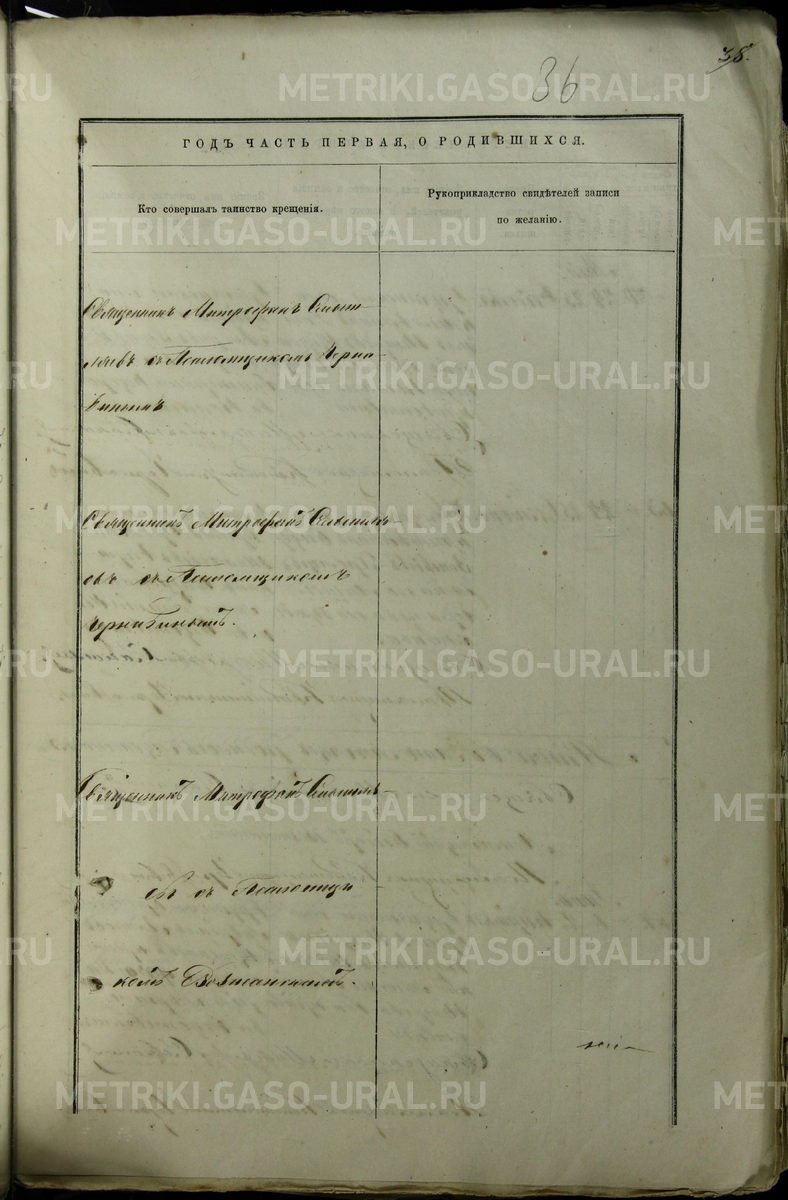 38.
36
ГОДЪ ЧАСТЬ ПЕРВАЯ, О РОДИВШИХСЯ.
Кто совершалъ таинство крещенія.
Рукоприкладство свидѣтелей записи
по желанію.
Священникъ Митрофанъ
съ Псаломщикомъ Черна-
Священникъ Митрофанъ
овъ съ Псаломщикомъ
Чернавинымъ.
Священникъ Митрофанъ
овъ съ Псаломщи
комъ
METRIKI.GASO-URAL.RU